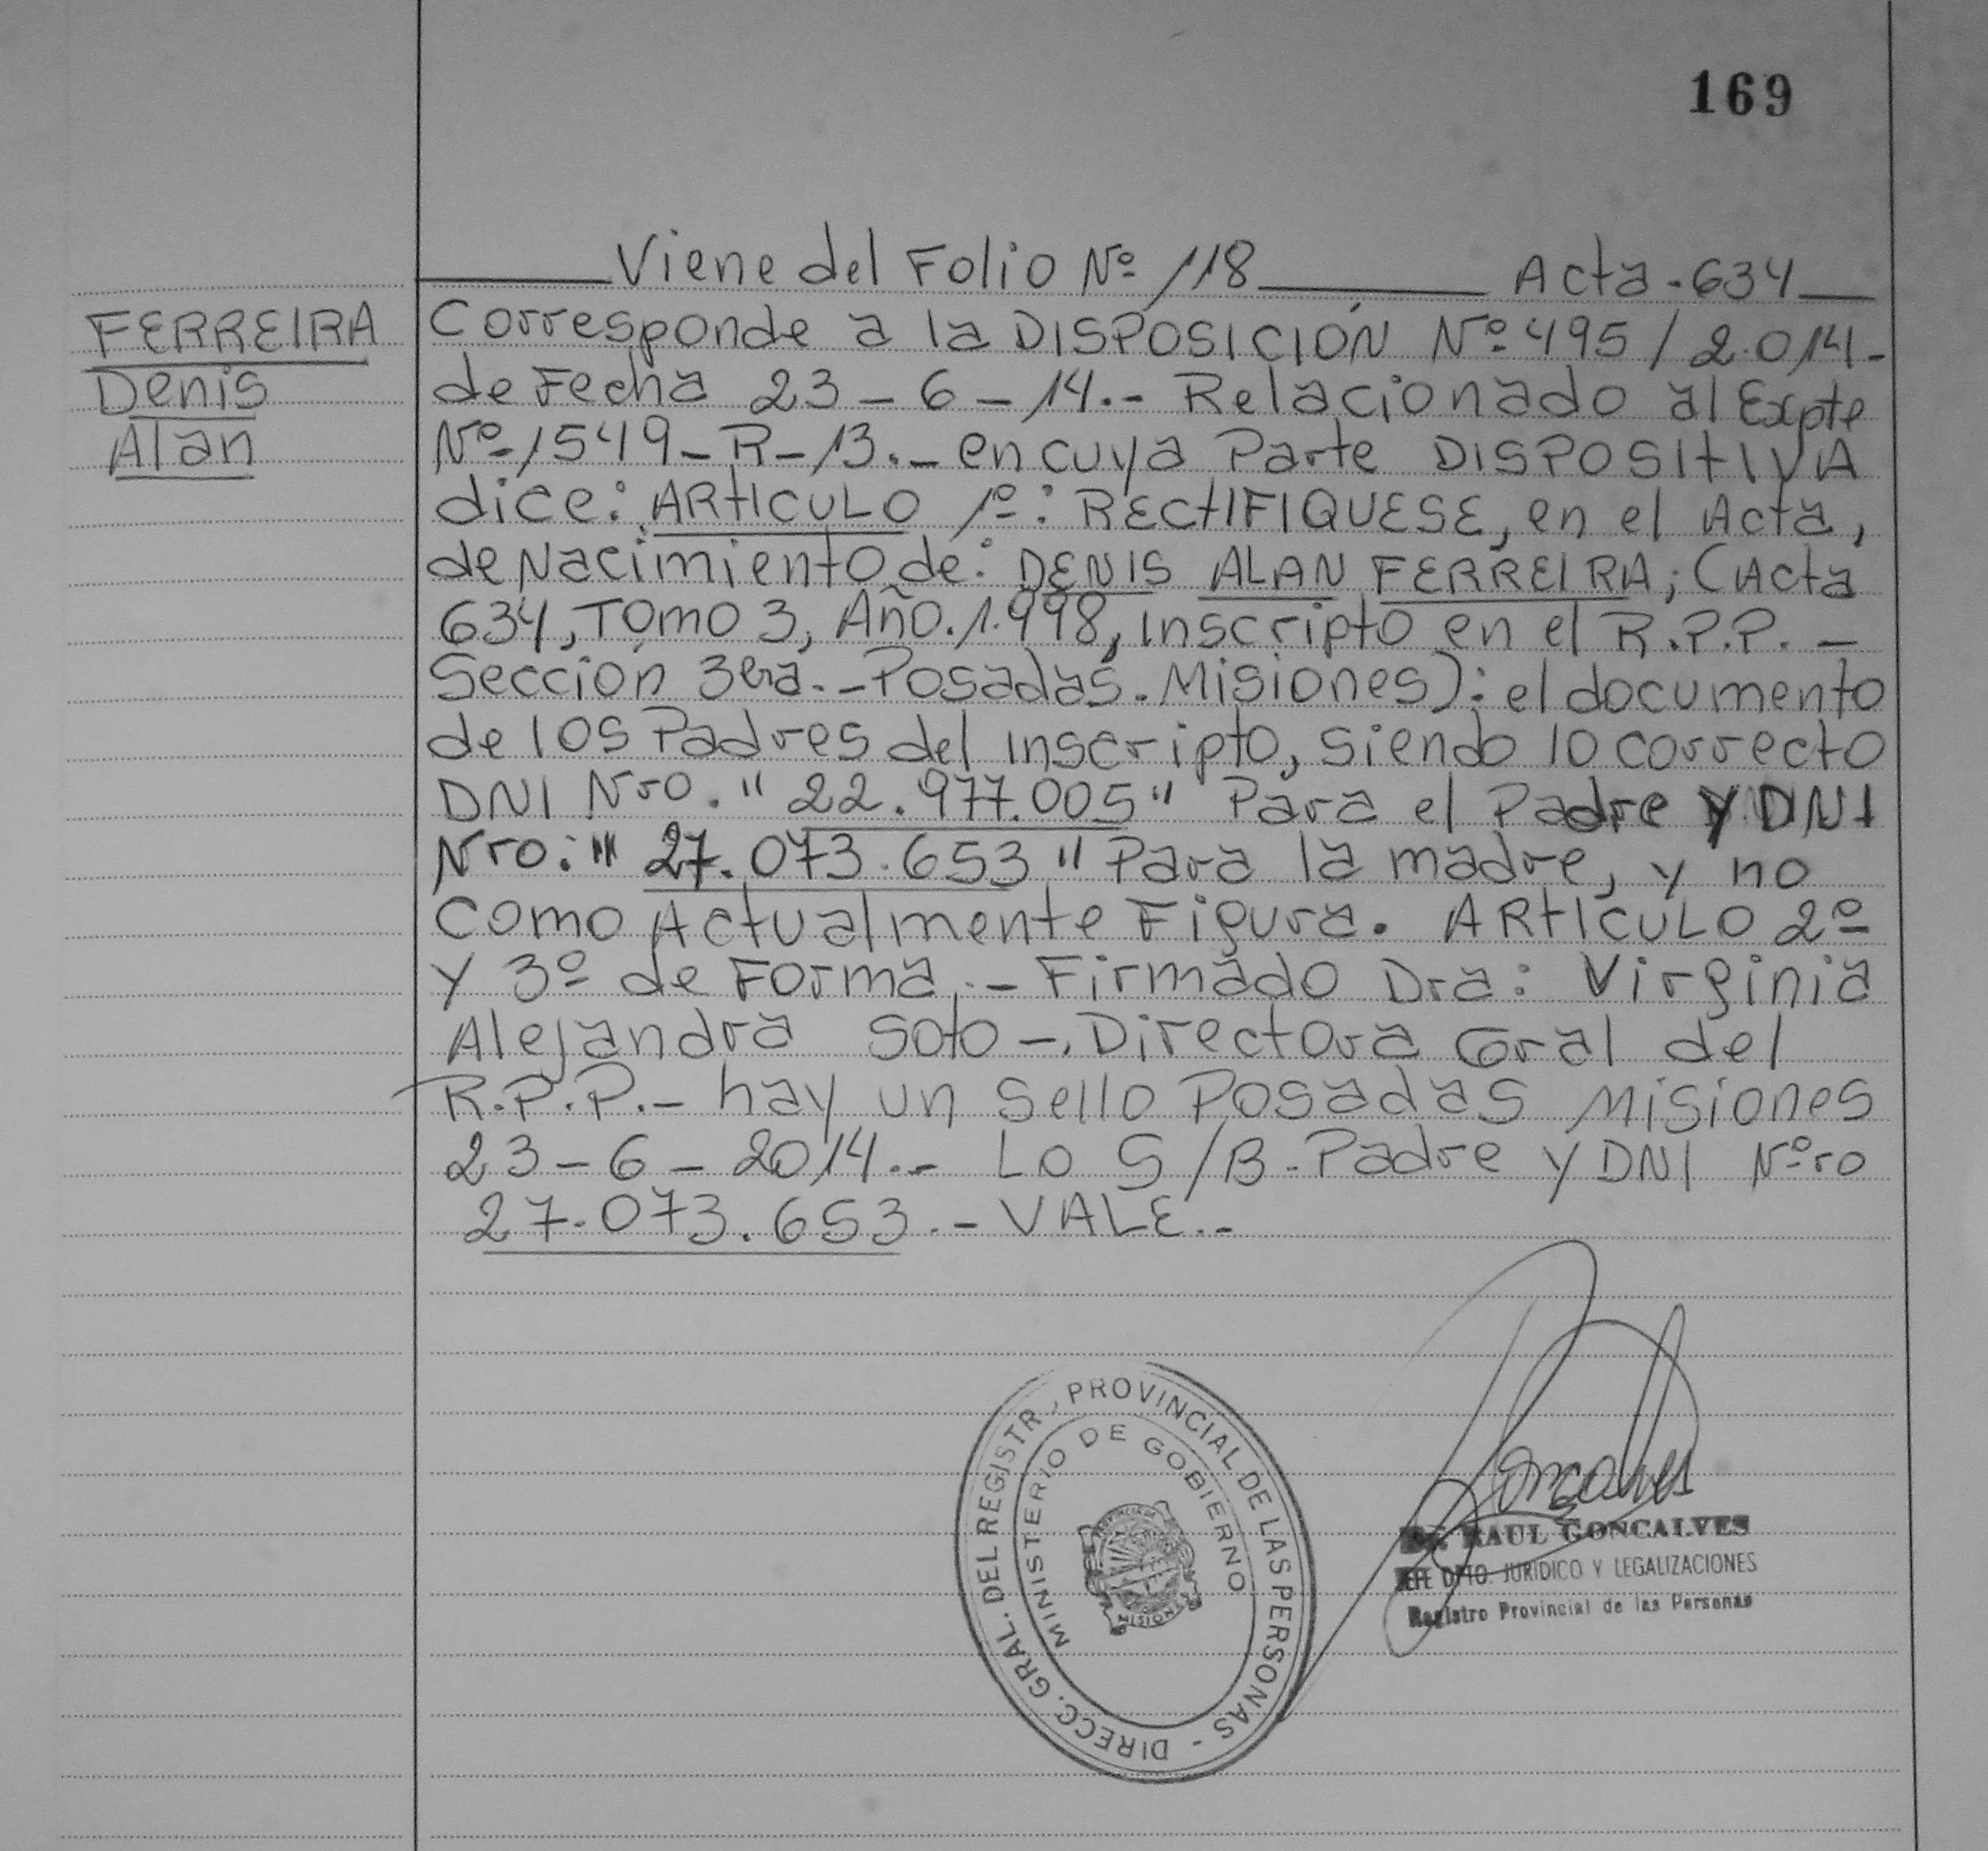 169
Viene del Folio Nº 118 Acta-634
FERREIRA
Denis
Alan
Corresponde a la DISPOSICIÓN Nº 495/2.014-
de Fecha 23-6-14.- Relacionado al Expte
Nº 1549-R-13.- en cuya Parte DISPOSITIVA
dice: ARTICULO 1º: RECTIFIQUESE, en el Acta,
de Nacimiento de: DENIS ALAN FERREIRA; (Acta
634, Tomo 3, Año.1.998, Inscripto en el R.P.P.-
Sección 3era.-Posadas.Misiones): el documento
de los Padres del inscripto, siendo lo correcto
DNI Nro. "22.977.005" Para el Padre Y DNI
Nro: "27.073.653" Para la madre, y no
Como Actualmente Figura. ARTÍCULO 2º
Y 3º de Forma.- Firmado Dra: Virginia
Alejandra Soto-. Directora Gral del
R.P.P.- hay un Sello Posadas Misiones
23-6-2014.- Lo S/B-Padre y DNI Nºro
27.073.653.- VALE.-
DIRECC. GRAL. DEL REGISTRO PROVINCIAL DE LAS PERSONAS -
MINISTERIO DE GOBIERNO
MISIONES
Goncalves
Dr. RAUL GONCALVES
JEFE DPTO. JURIDICO Y LEGALIZACIONES
Registro Provincial de las Personas